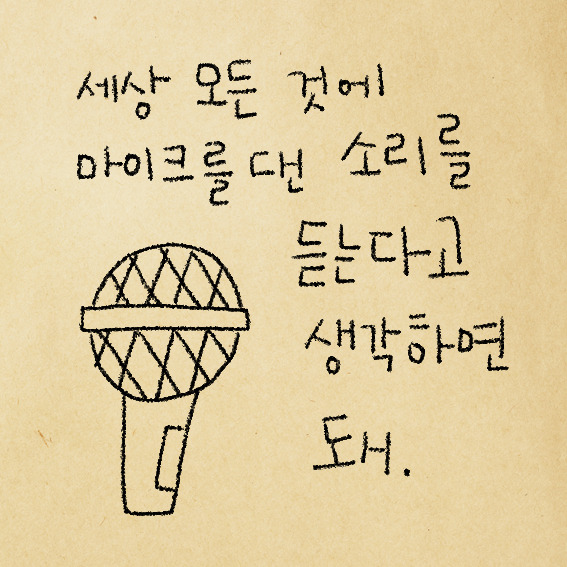 세상 모든 것에
마이크를 댄 소리를
듣는다고
생각하면
돼.